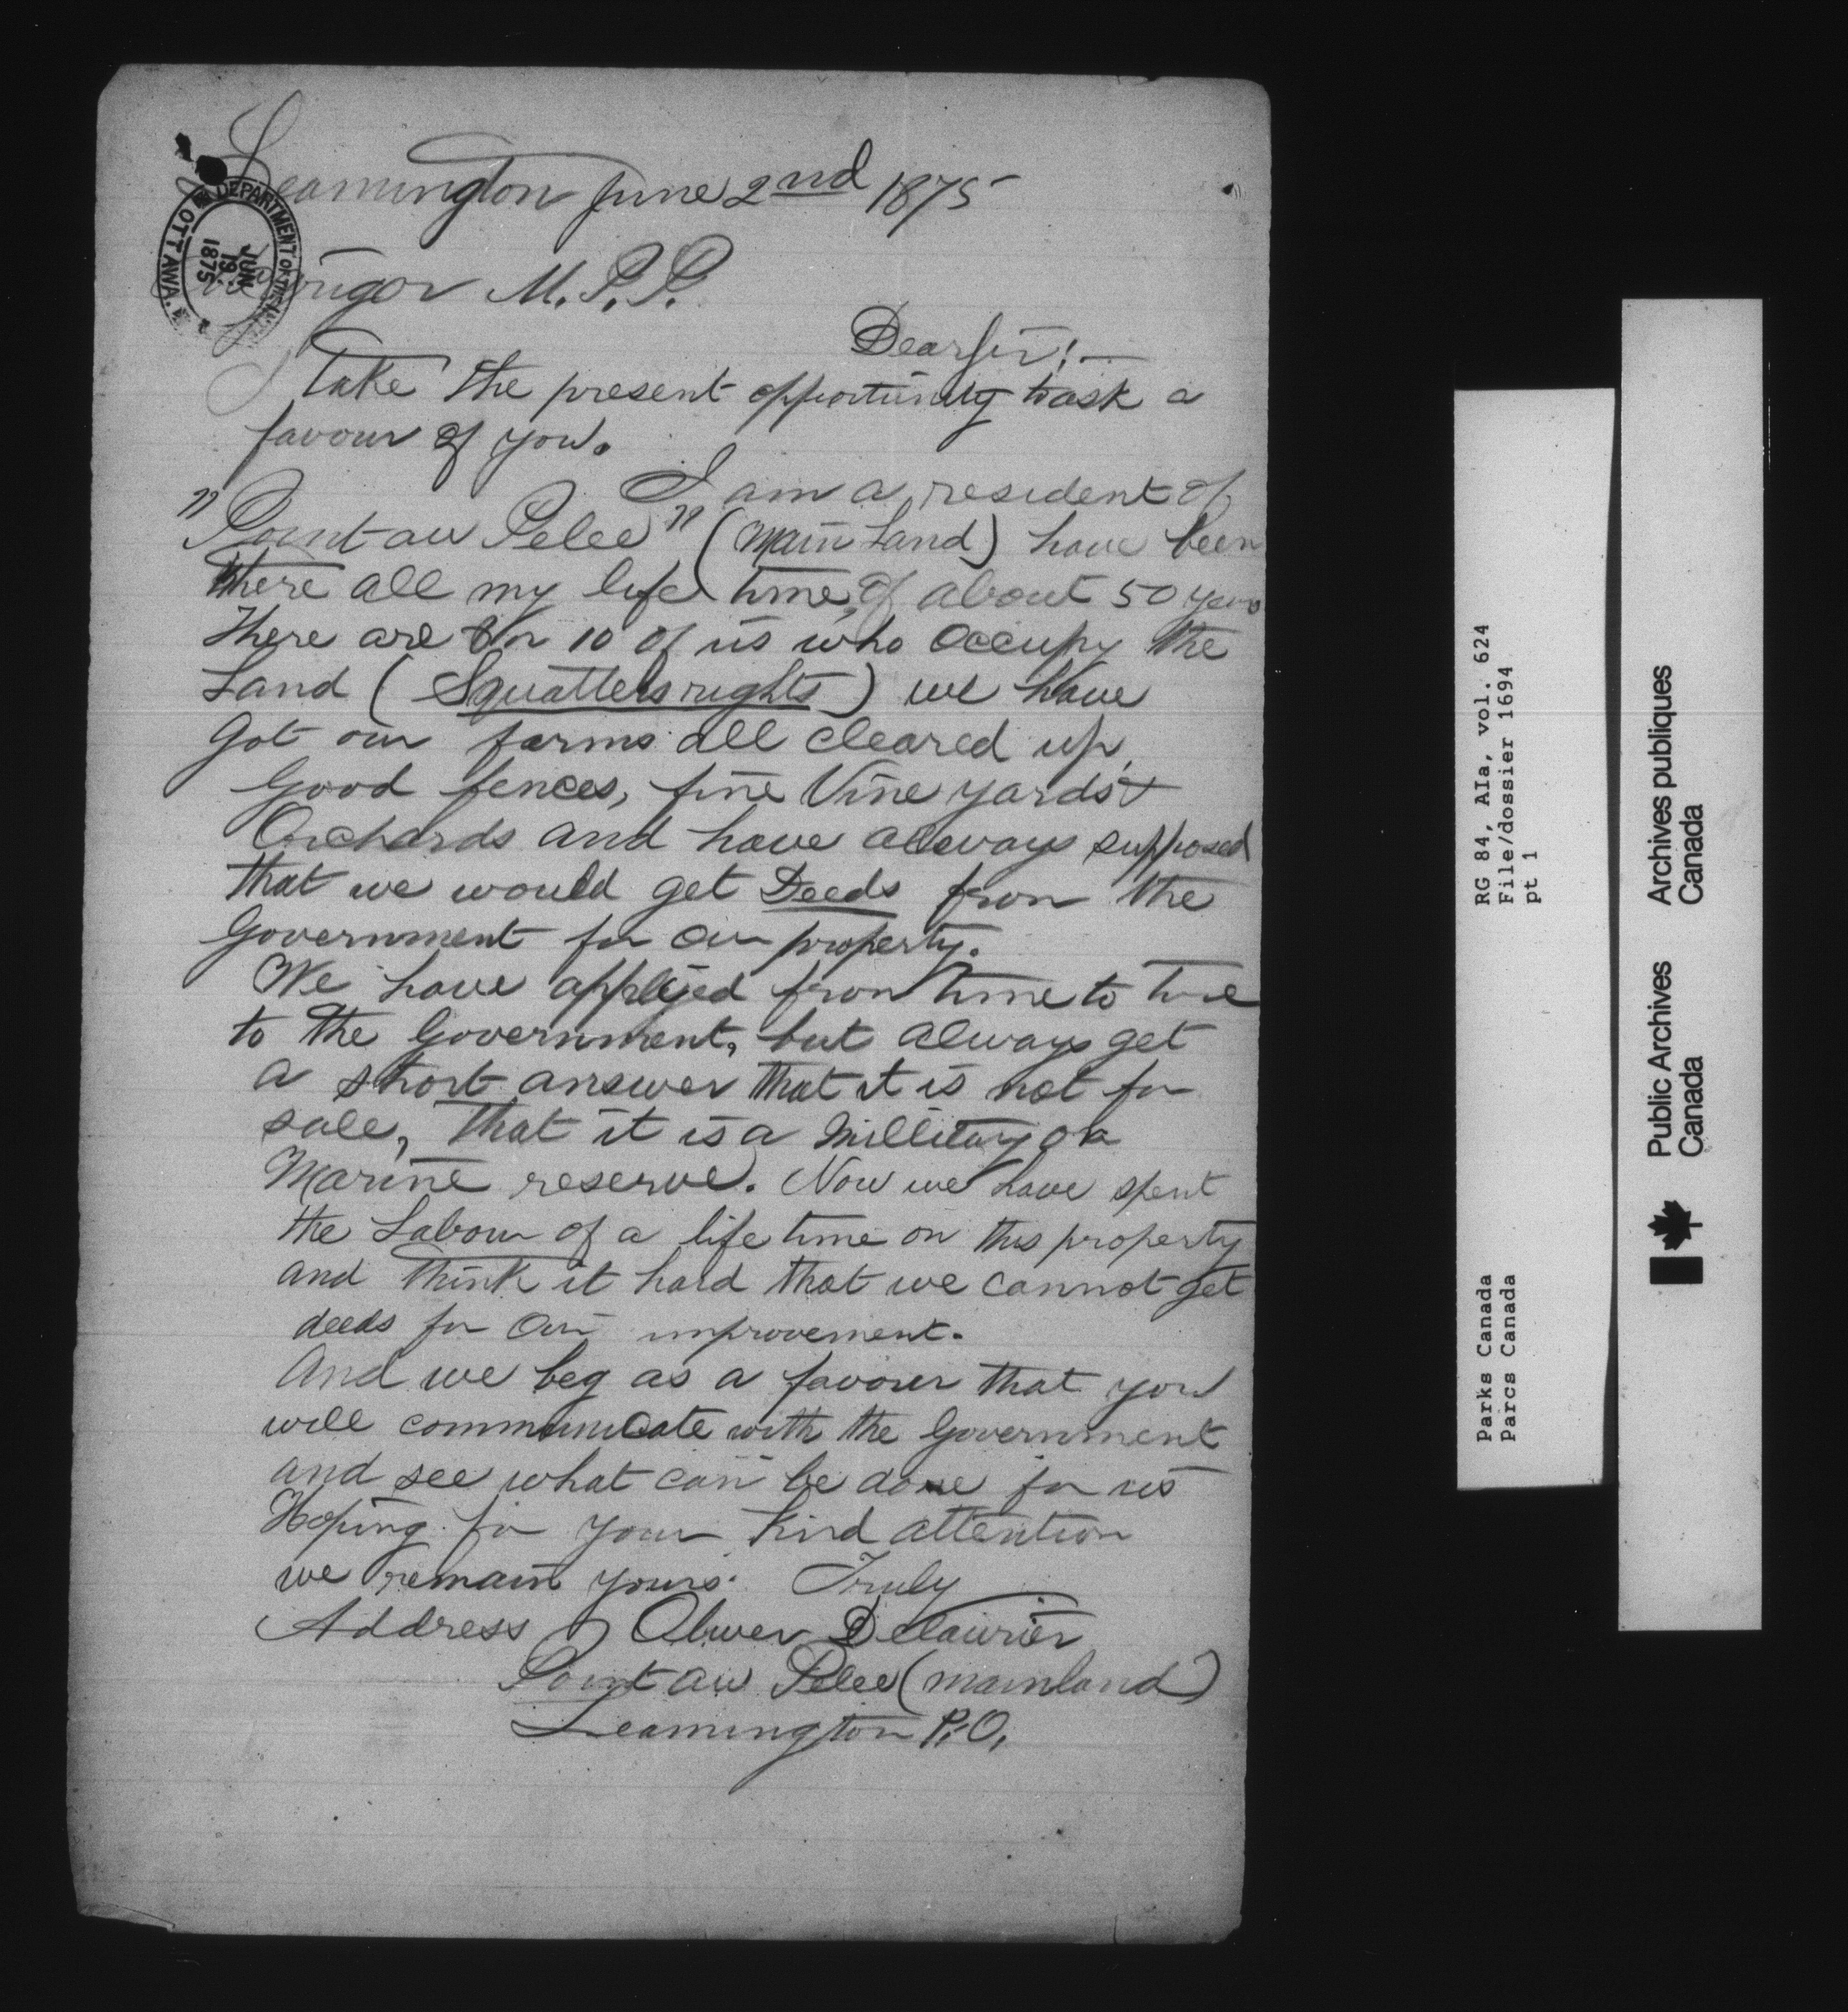 Leamington June 2nd 1875
DEPARTMENT OF THE
JUN
19
1875
OTTAWA.
McGregor M.P.P.
Dear Sir:—
I Take The present opportunity to ask a
favour of you.
I am a resident of
"Point au Pelee" (Main Land) have been
there all my life time, of about 50 years
There are 8 or 10 of us who occupy the
Land (Squatters rights) we have
got our farms all cleared up,
Good fences, fine Vine yards &
Orchards and have always supposed
that we would get Deeds from the
Government for our property.
We have applyed from time to time
to the Government, but always get
a short answer that it is not for
sale, That it is a Millitary or a
Marine reserve. Now we have spent
the Labour of a life time on this property
and Think it hard that we cannot get
deeds for our improvement.
And we beg as a favour that you
will communicate with the Government
and see what can be done for us
Hoping for your kind attention
we remain yours Truly
Address Oliver Delaurier
Point au Pelee (mainland)
Leamington P.O.
RG 84, AIa, vol. 624
File/dossier 1694
pt 1
Parks Canada
Parcs Canada
Public Archives
Canada
Archives publiques
Canada